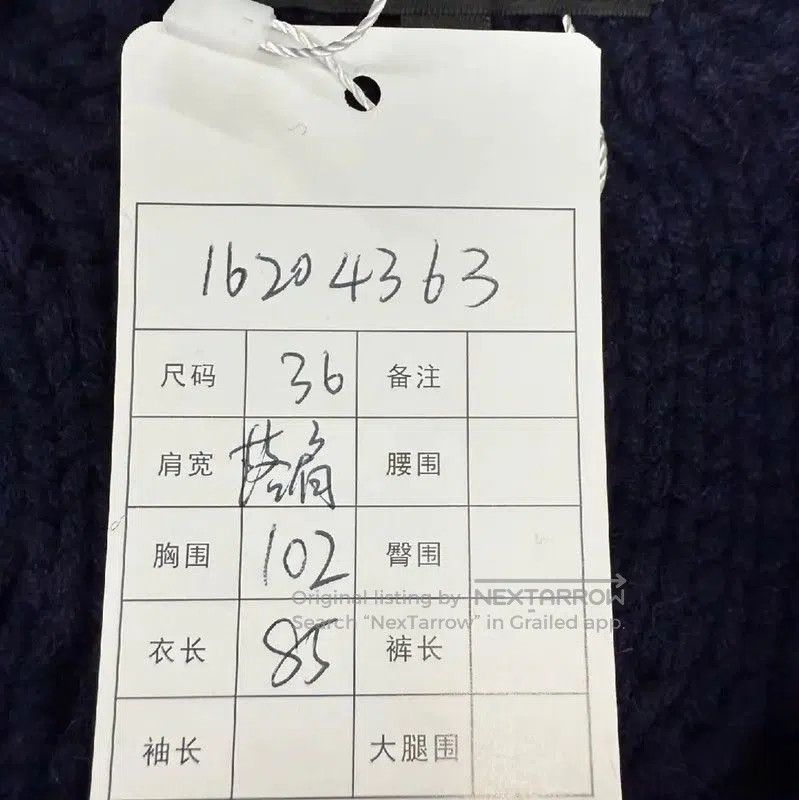 16204363
尺码 36 备注
肩宽 落肩 腰围
胸围 102 臀围
Original listing by NEXTARROW
Search “NexTarrow” in Grailed app.
衣长 85 裤长
袖长 大腿围